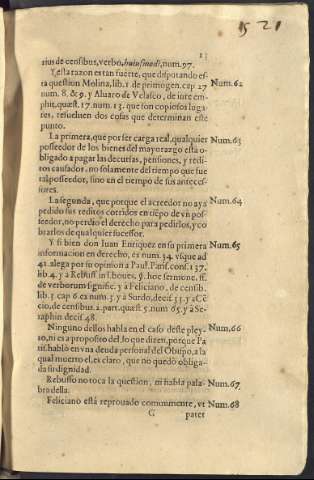 1521
13
rius de censibus, verbo, huiusmodi, num. 97.
Y esta razon es tan fuerte, que disputando es-
ta question Molina, lib. 1. de primogen. cap 27 Num. 62
num. 8. & 9. y Aluaro de Velasco, de iure em-
phit. quæst. 17. num. 13. que son copiosos luga-
res, resueluen dos cosas que determinan este
punto.
La primera, que por ser carga real, qualquier Num. 63
posseedor de los bienes del mayorazgo està o-
bligado a pagar las decursas, pensiones, y redi-
tos causados, no solamente del tiempo que fue
tal posseedor, sino en el tiempo de sus anteces-
sores.
La segunda, que porque el acreedor no aya Num. 64
pedido sus reditos corridos en tiẽpo de vn pos-
seedor, no perdio el derecho para pedirlos, y co
brarlos de qualquier sucessor.
Y si bien don Iuan Enriquez en su primera Num. 65
informacion en derecho, ex num. 34. vsque ad
41. alega por su opinion a Paul. Paris. cons. 137.
lib. 4. y a Rebuf. in l. boues, §. hoc sermone, ff.
de verborum signific. y a Feliciano, de censib.
lib. 3 cap 6 ex num. 3. y a Surdo, decis 33. y a Cẽ
cio, de censibus 2. part. quæst. 5. num 65. y a Se-
raphin decis 48.
Ninguno dellos habla en el caso deste pley- Num. 66
to, ni es a proposito del, lo que diren, porque Pa
ris. habló en vna deuda personal del Obispo, a la
qual muerto el, es claro, que no quedò obliga-
da su dignidad.
Rebuffo no toca la question, ni habla pala- Num. 67
bra della.
Feliciano està reprouado comunmente, vt Num. 68
G patet